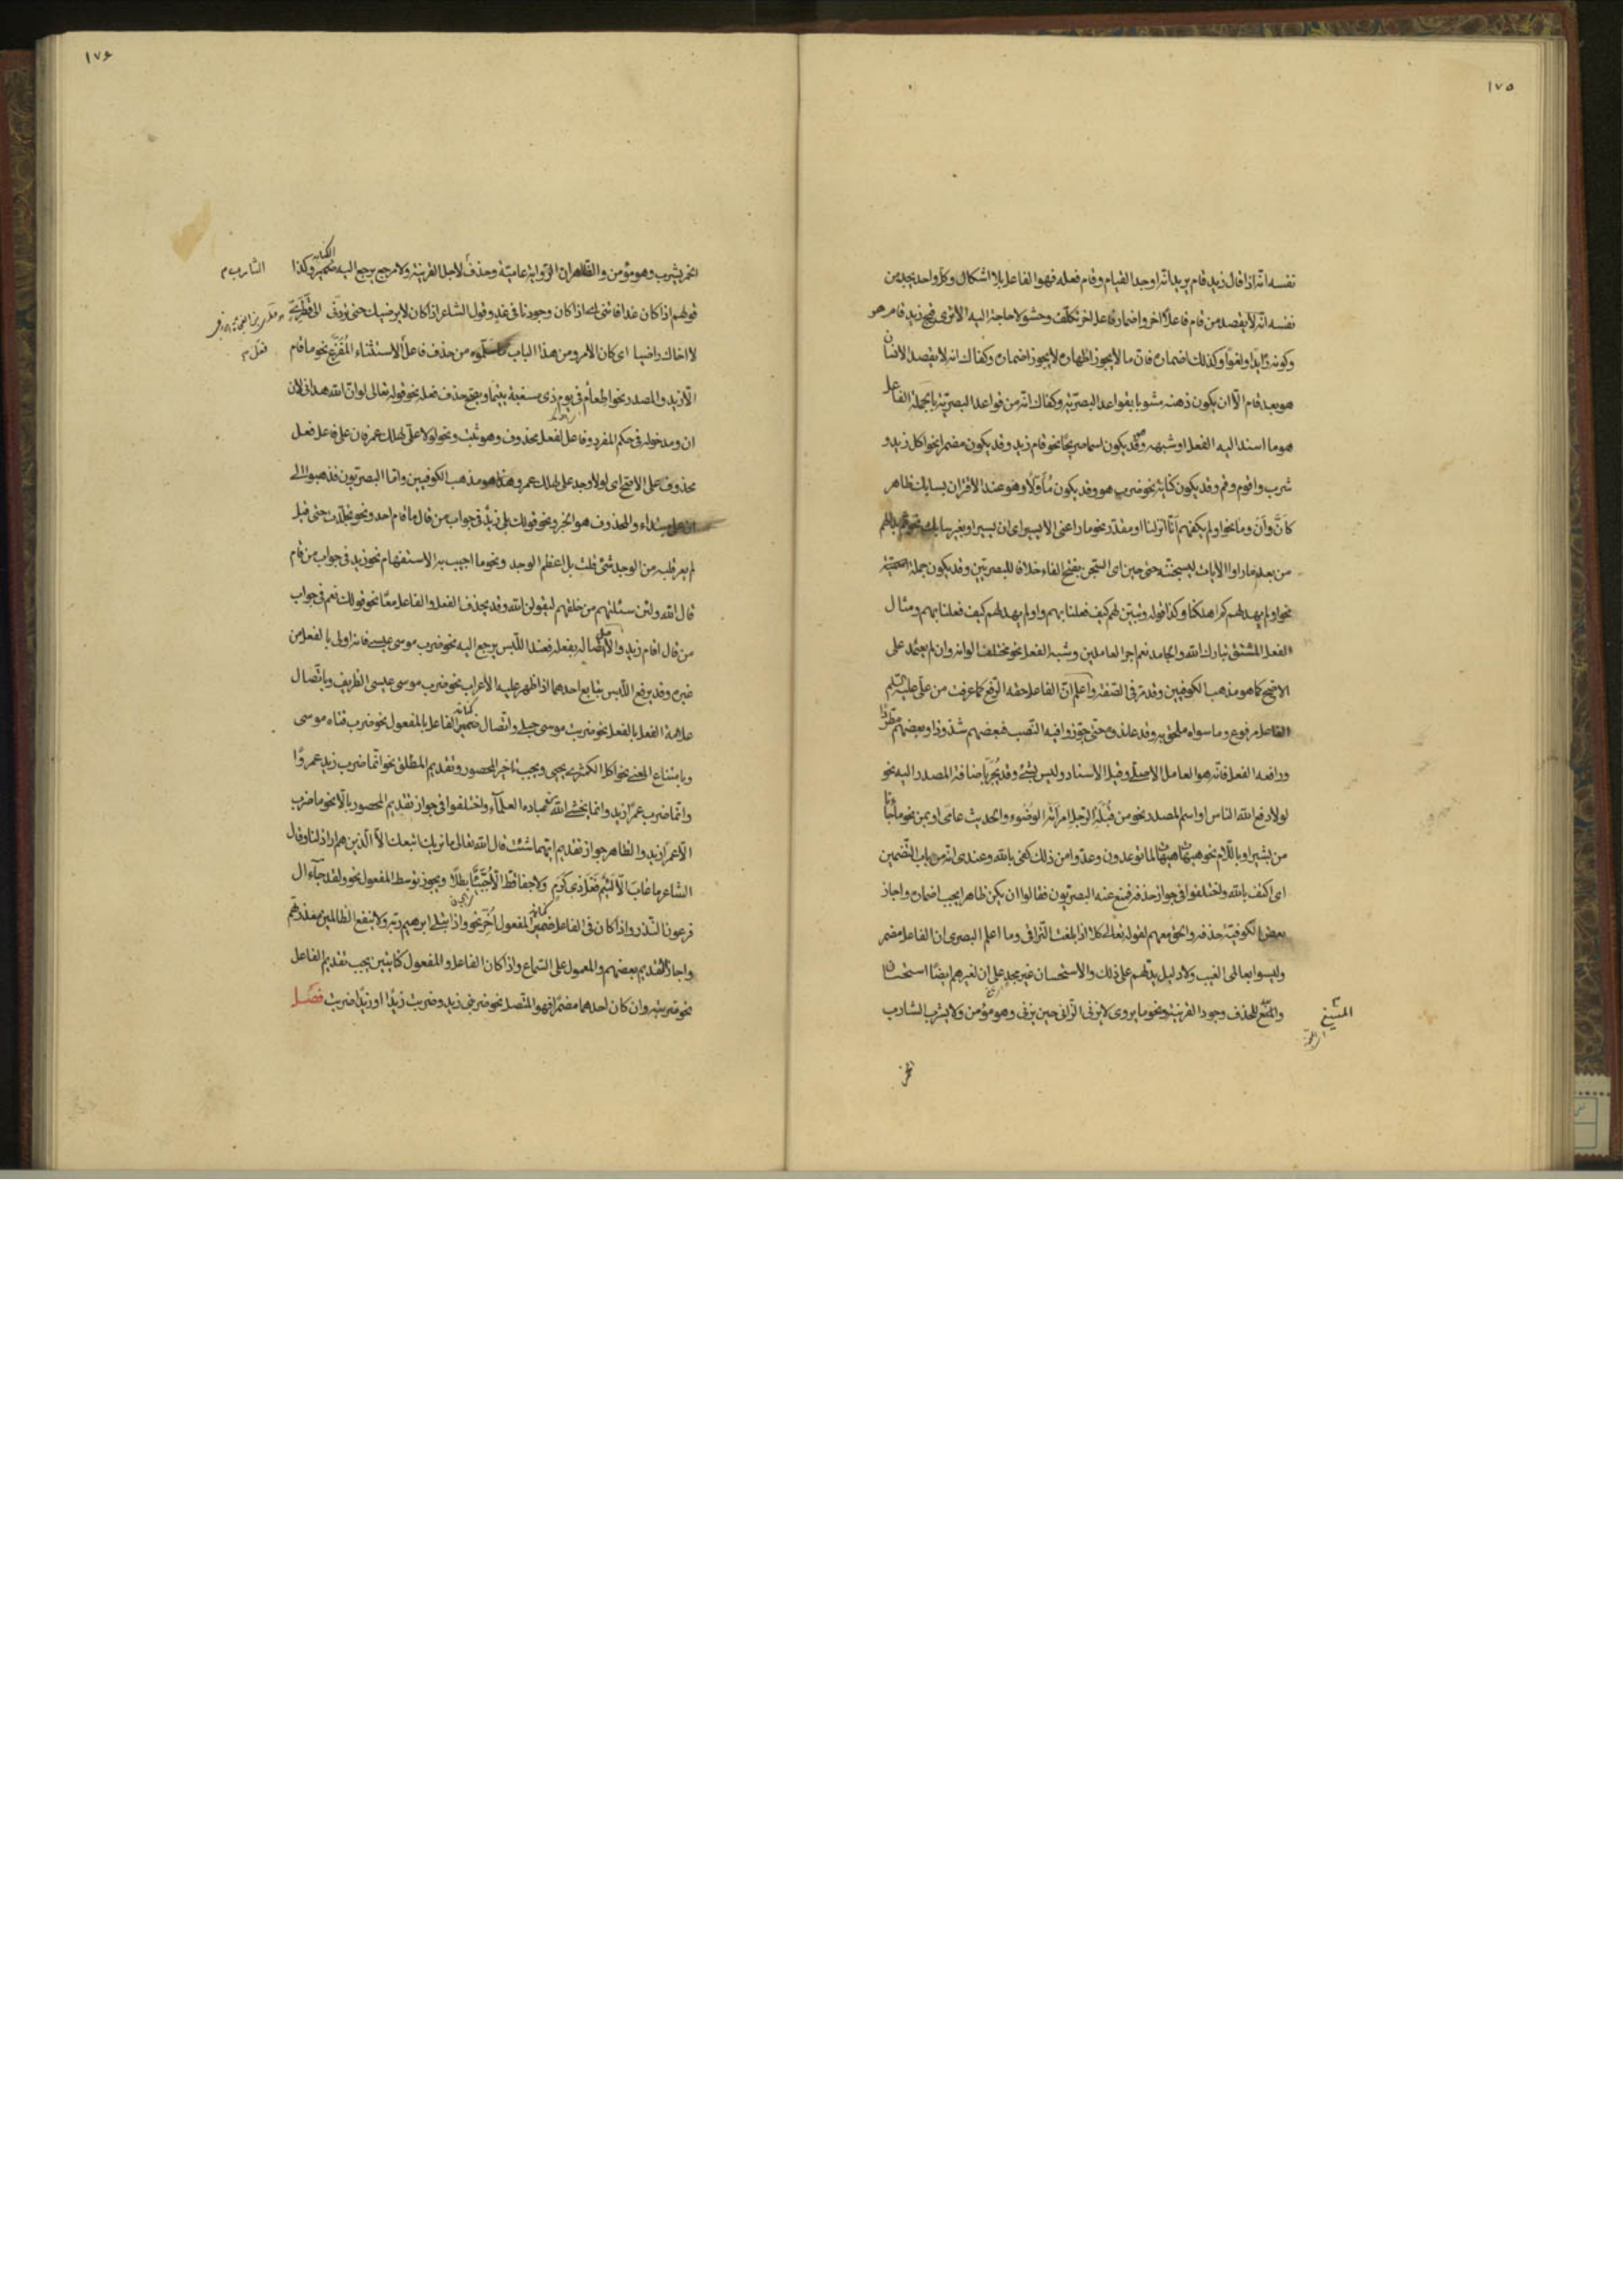 ١٧٥
نفسه انّه اذا قال زيد قام يريد انّه اوجد القيام وقام فعله فهو الفاعل بلا اشكال وكلّ واحد يجد من
نفسه انّه لا يقصد من قام فاعلاً آخر واضمار فاعل اخر تكلّف وحشو لا حاجة اليه الا ترى زيد قام هو
وكونه زايداً ولغواً وكذلك اضماره فانّ ما لا يجوز اظهاره لا يجوز اضماره وكفاك انه لا يقصد الانسان
هو بعد قام الّا ان يكون ذهنه مشوبا بقواعد البصريّة وكفاك انّه من قواعد البصريّة بالجملة الفاعل
هو ما اسند اليه الفعل او شبهه وقد يكون اسما صريحًا نحو قام زيد وقد يكون مضمرا نحو اكل زيد و
شرب واقوم وقم وقد يكون كناية نحو ضرب هو وقد يكون مُأوّلاً وهو عند الاقران بسابك ظاهر
كأنّ وأن وما نحو اولم يكفهم أنّا انزلنا او مقدّر نحو ما راعنى الا يسير اى ان يسير او بغير سابك نحو ثم بدا لهم
من بعد ما راوا الايات ليسجننّه حتى حين اى السّجن بفتح الفاء خلافا للبصريّين وقد يكون جملة
نحو اولم يهد لهم كم اهلكنا وكذا قوله وتبيّن لهم كيف فعلنا بهم واولم يهد لهم كيف فعلنا بهم ومثال
الفعل المشتق تبارك الله والجامد نعم اجر العاملين وشبه الفعل نحو مختلفا الوانه وان لم يعتمد على
الاصح كما هو مذهب الكوفيين وقد مرّ فى الصّفة واعلم انّ الفاعل حقه الرّفع كما عرفت من علّى عليه السّلم
الفاعل مرفوع وما سواه ملحق به وقد حتى جوّزوا فيه النّصب فبعضهم شذوذا وبعضهم مطّردًا
ورافعه الفعل فانّه هو العامل الاصلى وقيل الاسناد وليس بشئ وقد يُجرّ باضافة المصدر اليه نحو
لولا دفع الله الناس او اسم المصدر نحو من قُبلَةِ الرّجلِ امرَأتَه الوضوء والحديث عامّى او بمن نحو ما جاءنا
من بشير او باللّام نحو هيهات هيهات لما توعدون وعدّوا من ذلك كفى بالله وعندى انّه من باب التّضمين
اى اكتف بالله واختلفوا فى جواز حذفه فمنع عنه البصريّون فقالوا ان يكن ظاهرا يجب اضماره واجاز
بعض الكوفيّة حذفه والحقّ معهم لقوله تعالى كلا اذا بلغت التّراقى وما اعلم البصرى ان الفاعل مضمر
وليسوا بعالمى الغيب ولا دليل يدلّهم على ذلك والاستحسان غير مجدٍ على ان لغيرهم ايضًا استحسان
والمتّبع للحذف وجود القرينة ونحو ما يروى لا يزنى الزّانى حين يزنى وهو مؤمن ولا يشرب الشارب
الخمر
١٧٦
الخمر يشرب وهو مؤمن والظاهر ان الرّواية عاميّة وحذف لاجل القرينة ولا مرجع يرجع اليه ضمير وكذا
الشارب
قولهم اذا كان غدا فائتنى اى اذا كان وجودنا فى غد وقول الشاعر اذا كان لا يرضيك حتى تردّنى الى قَطَرِىٍّ
لا اخالك راضيا اى كان الامر ومن هذا الباب ما سلّموه من حذف فاعل الاستثناء المُفَرَّغ نحو ما قام
الّا زيد والمصدر نحو اطعام فى يوم ذى مسغبة يتيما ويصحّ حذف فعله نحو قوله تعالى لو انّ الله هدانى لان
ان ومدخوله فى حكم المفرد وفاعل لفعل محذوف وهو ثبت ونحو لولا علّى لهلك عمر فان على فاعل فعل
محذوف على الاصح اى لولا وجد على لهلك عمر وهذا هو مذهب الكوفيين وامّا البصريون فذهبوا الى
ابتداء والمحذوف هو الخبر ونحو قولك بلى زيدٌ فى جواب من قال ما قام احد ونحو تجلّدت حتى قيل
لم يعر قلبه من الوجد شئ قلت بل اعظم الوجد ونحو ما اجيب به الاستفهام نحو زيد فى جواب من قام
قال الله ولئن سئلتهم من خلقهم ليقولن الله وقد يحذف الفعل والفاعل معًا نحو قولك نعم فى جواب
من قال اقام زيد والاصل اتّصاله بفعله فعند اللّبس يرجع اليه نحو ضرب موسى عيسى فانه اولى بالفعل من
غيره وقد يرفع اللّبس بتابع احدهما اذا ظهر عليه الاعراب نحو ضرب موسى عيسى الظريف وباتّصال
علامة الفعل بالفعل نحو ضربت موسى حبلى واتّصال ضمير الفاعل بالمفعول نحو ضرب فتاه موسى
وبامتناع المعنى نحو اكل الكمثرى يحيى ويجب تاخير المحصور وتقديم المطلق نحو انّما ضرب زيد عمروًا
وانّما ضرب عمرًا زيد وانما يخشى الله من عباده العلمآء واختلفوا فى جواز تقديم المحصور بالّا نحو ما ضرب
الّا عمرًا زيد والظاهر جواز تقديم ايّهما شئت قال الله تعالى ما نريك اتبعك الّا الّذين هم اراذلنا وقال
الشاعر ما عابَ الّا لئيمٌ فعلَ ذى كَرَمٍ ولا جفا قطّ الّا جُبّئٌ بطلاً ويجوز توسط المفعول نحو ولقد جآء آل
فرعون النّذر واذا كان فى الفاعل ضمير المفعول اُخّر نحو واذ ابتلى ابرهيم ربّه ولا ينفع الظالمين معذرتهم
واجاز التقديم بعضهم والمعمول على السّماع واذا كان الفاعل والمفعول كنايتين يجب تقديم الفاعل
نحو ضربته وان كان احدهما مضمرًا فهو المتّصل نحو ضربنى زيد وضربت زيدًا او زيدًا ضربت فصل